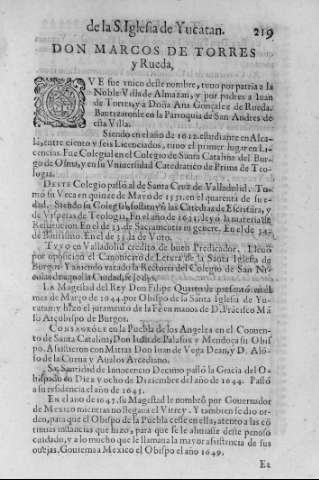 de la S. Iglesia de Yucatan. 219
DON MARCOS DE TORRES
y Rueda,
QVE fue vnico deste nombre, tuuo por patria a la
Noble Villa de Almazan, y por padres a Iuan
de Torres, y a Doña Ana Gonçalez de Rueda.
Bautizaronle en la Parroquia de San Andres de
esta Villa.
Siendo en el año de 1612. estudiante en Alca-
là, entre ciento y seis Licenciados, tuuo el primer lugar en Li-
cencias. Fue Colegial en el Colegio de Santa Catalina del Bur-
go de Osma, y en su Vniuersidad Catedratico de Prima de Teo-
logia.
DESTE Colegio passò al de Santa Cruz de Valladolid. To-
mò su Veca en quinze de Mayo de 1531. en el quarenta de su e-
dad. Siendo su Colegial, substituyò las Catedras de Escritura, y
de Visperas de Teologia, En el año de 1631. leyò la materia de
En el de 33. de Sacramentis in genere. En el de 34.
de Bautismo. En el de 35. la de Voto.
TVVO en Valladolid credito de buen Predicador. Lleuò
por oposicion el Canonicato de Letura de la Santa Iglesia de
Burgos. Y auiendo vacado la Rectoria del Colegio de San Ni-
colas
LA Magestad del Rey Don Felipe Quarto le presentò en el
mes de Março de 1644. por Obispo de la Santa Iglesia de Yu-
catan: y hizo el juramento de la Fè en manos de D. Frãcisco Mã
so Arçobispo de Burgos.
CONSAGROLE en la Puebla de los Angeles en el Conuen-
to de Santa Catalina, Don Iuan de Palafox y Mendoça su Obis-
po. Assistieron con Mitras Don Iuan de Vega Dean, y D. Alõ-
so de la Cueua y Aualos Arcediano.
SV Santidad de Innocencio Decimo passò la Gracia del O-
bispado en Diez y ocho de Diziembre del año de 1644. Passò
a su residencia el año de 1645.
En el año de 1647. su Magestad le nombrò por Gouernador
de Mexico mientras no llegaua el Virrey. Y tambien se dio or-
den, para que el Obispo de la Puebla cesse en ella, atento a las cõ
tinuas instancias que hazo, para que se le aliuiasse deste penoso
cuidado, y a lo mucho que le llamaua la mayor assistencia de sus
ouejas. Gouierna a Mexico el Obispo el año 1649.